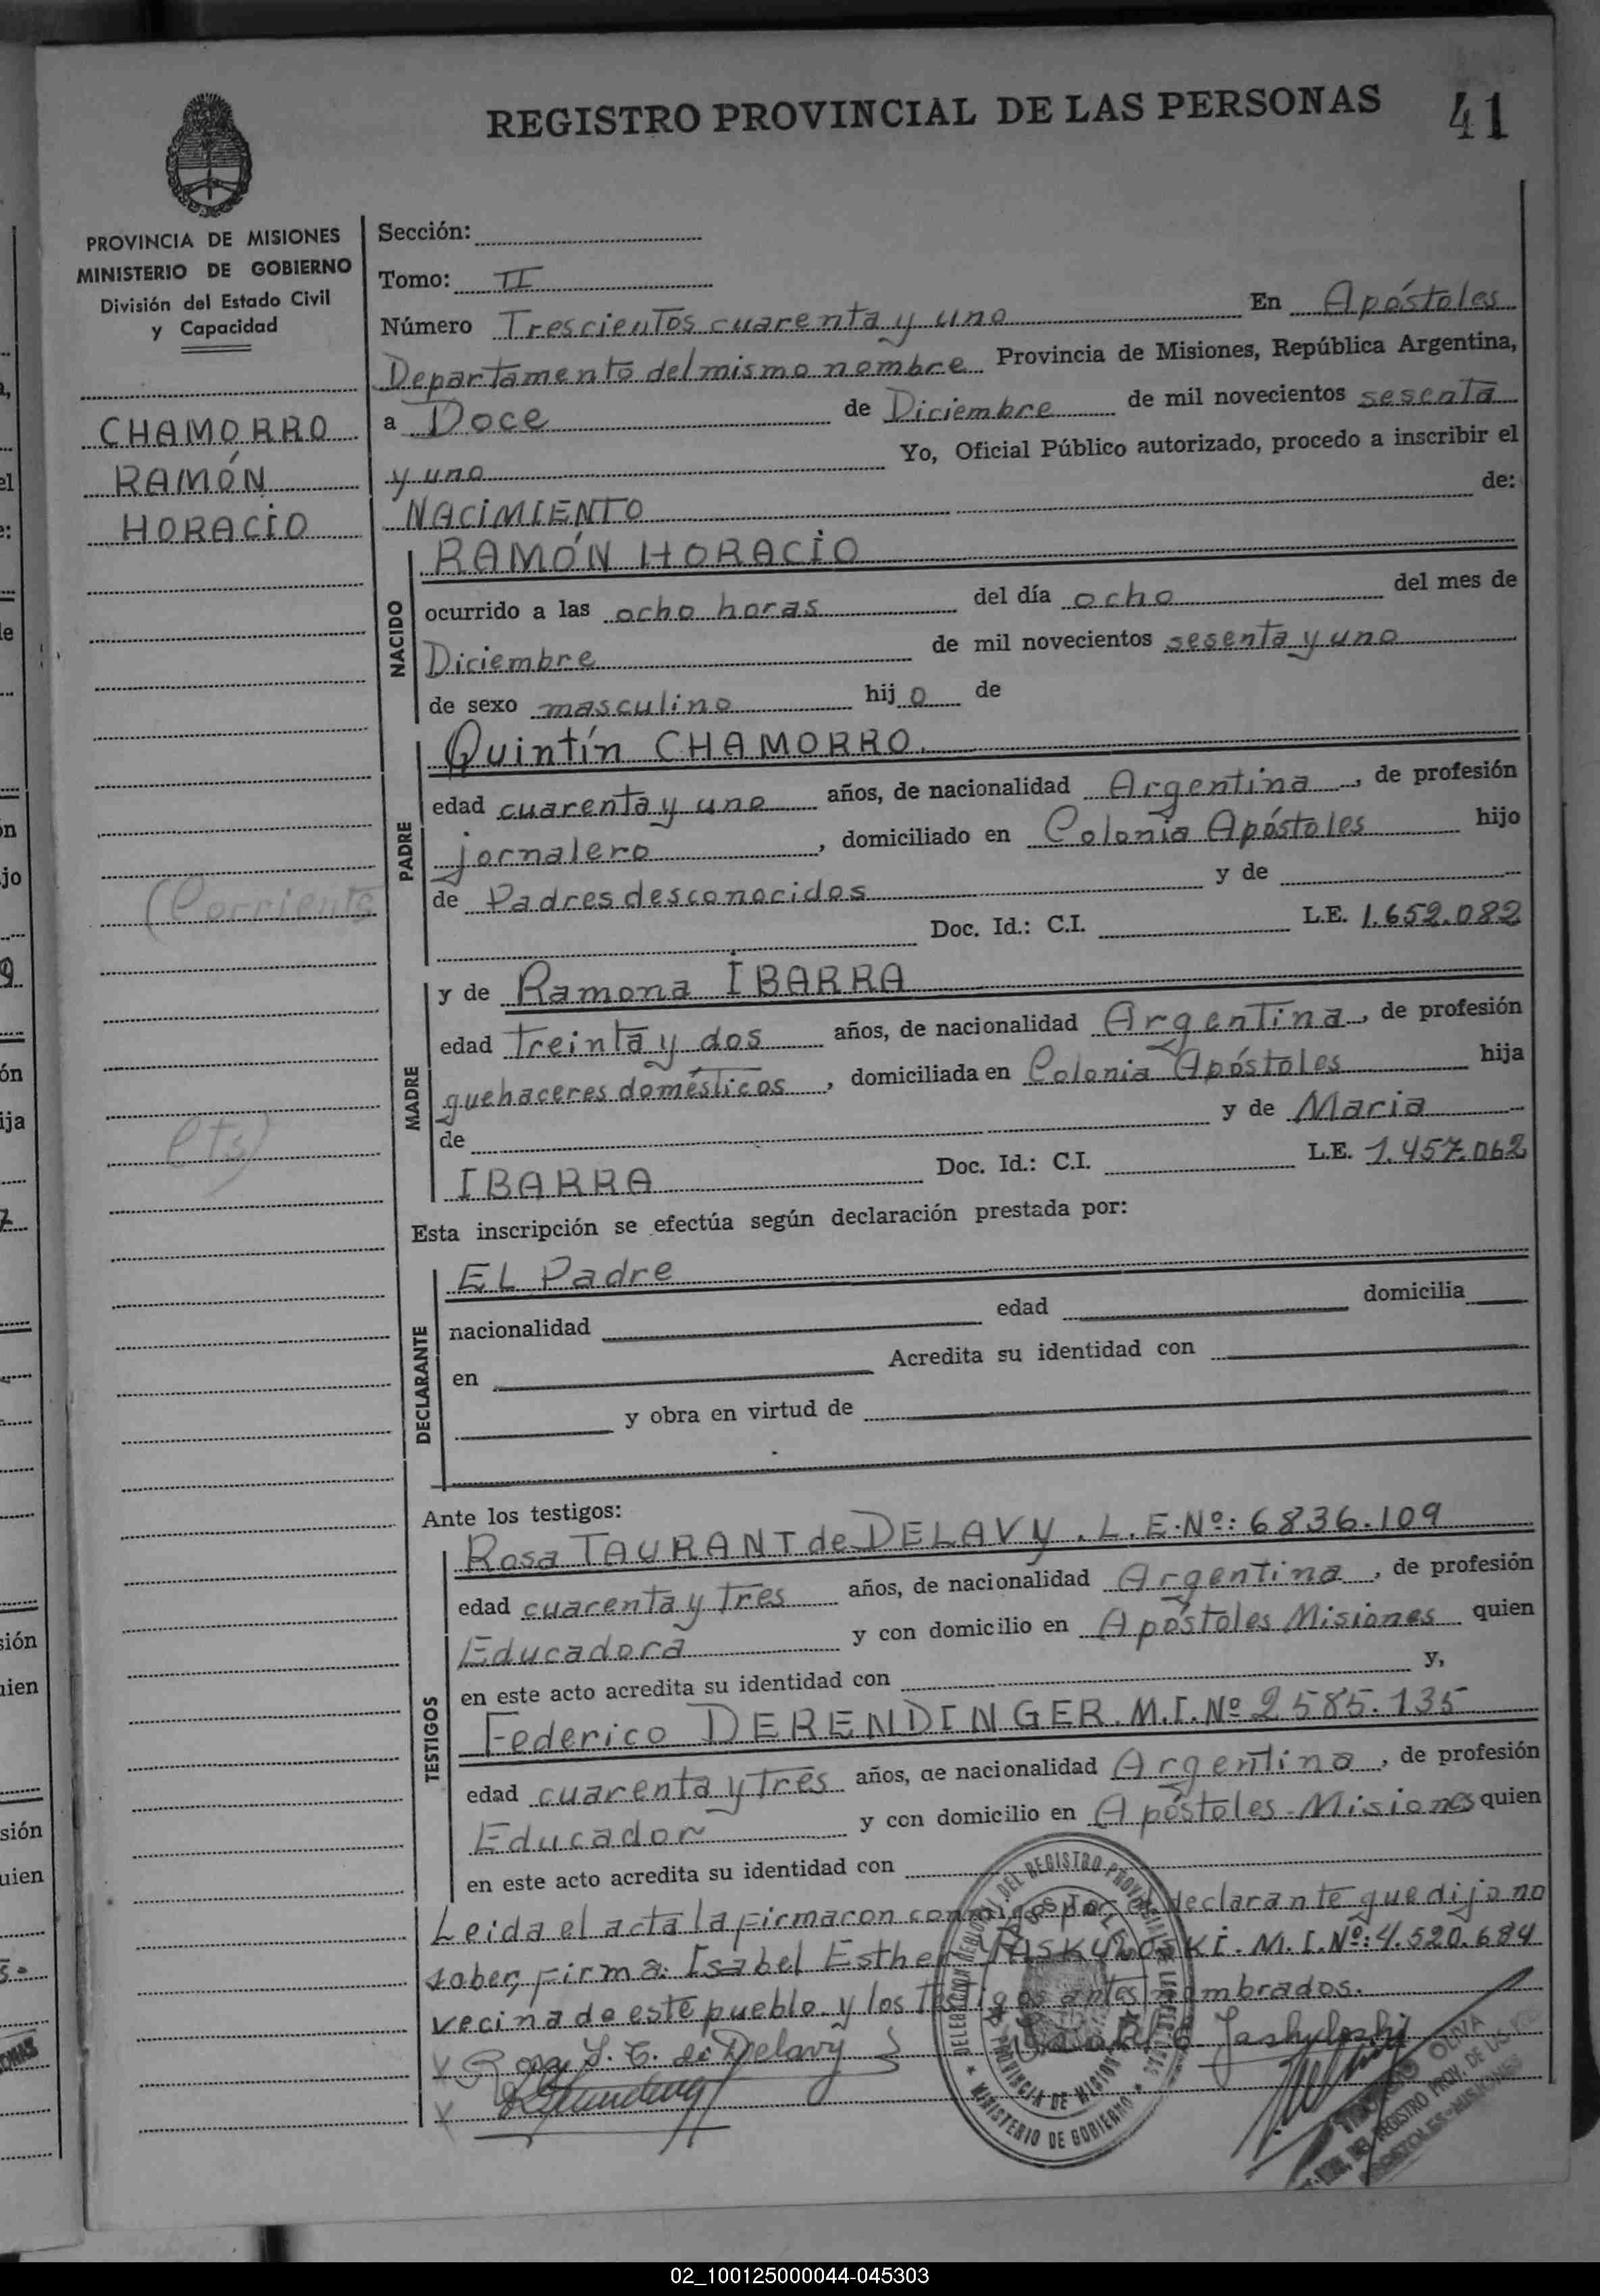 REGISTRO PROVINCIAL DE LAS PERSONAS
41
PROVINCIA DE MISIONES
MINISTERIO DE GOBIERNO
División del Estado Civil
y Capacidad
CHAMORRO
RAMÓN
HORACIO
(Corriente
(ts)
Sección:
Tomo: II
Número Trescientos cuarenta y uno En Apóstoles
Departamento del mismo nombre Provincia de Misiones, República Argentina,
a Doce de Diciembre de mil novecientos sesenta
y uno Yo, Oficial Público autorizado, procedo a inscribir el
NACIMIENTO de:
NACIDO
RAMÓN HORACIO
ocurrido a las ocho horas del día ocho del mes de
Diciembre de mil novecientos sesenta y uno
de sexo masculino hijo de
PADRE
Quintín CHAMORRO.
edad cuarenta y uno años, de nacionalidad Argentina, de profesión
jornalero, domiciliado en Colonia Apóstoles hijo
de Padres desconocidos y de
Doc. Id.: C.I. L.E. 1.652.082
MADRE
y de Ramona IBARRA
edad treinta y dos años, de nacionalidad Argentina, de profesión
quehaceres domésticos, domiciliada en Colonia Apóstoles hija
de y de Maria
IBARRA Doc. Id.: C.I. L.E. 1.457.062
Esta inscripción se efectúa según declaración prestada por:
DECLARANTE
EL Padre
nacionalidad edad domicilia
en Acredita su identidad con
y obra en virtud de
Ante los testigos:
TESTIGOS
Rosa TAURANT de DELAVY. L.E. Nº: 6836.109
edad cuarenta y tres años, de nacionalidad Argentina, de profesión
Educadora y con domicilio en Apóstoles Misiones quien
en este acto acredita su identidad con y,
Federico DERENDINGER. M.I. Nº 2585.135
edad cuarenta y tres años, de nacionalidad Argentina, de profesión
Educador y con domicilio en Apóstoles-Misiones quien
en este acto acredita su identidad con
Leida el acta la firmaron conmigo por el declarante que dijo no
saber firma: Isabel Esther M.I. Nº: 4.520.684
vecina de este pueblo y los Testigos antes nombrados.
Rosa T. de Delavy
DELEGACION DEL REGISTRO PROVINCIAL DE LAS PERSONAS
MINISTERIO DE GOBIERNO
PROVINCIA DE MISIONES
OLIVA
REGISTRO PROV. DE LAS
APOSTOLES-MISIONES
ón
jo
ija
sión
uien
sión
uien
02_100125000044-045303